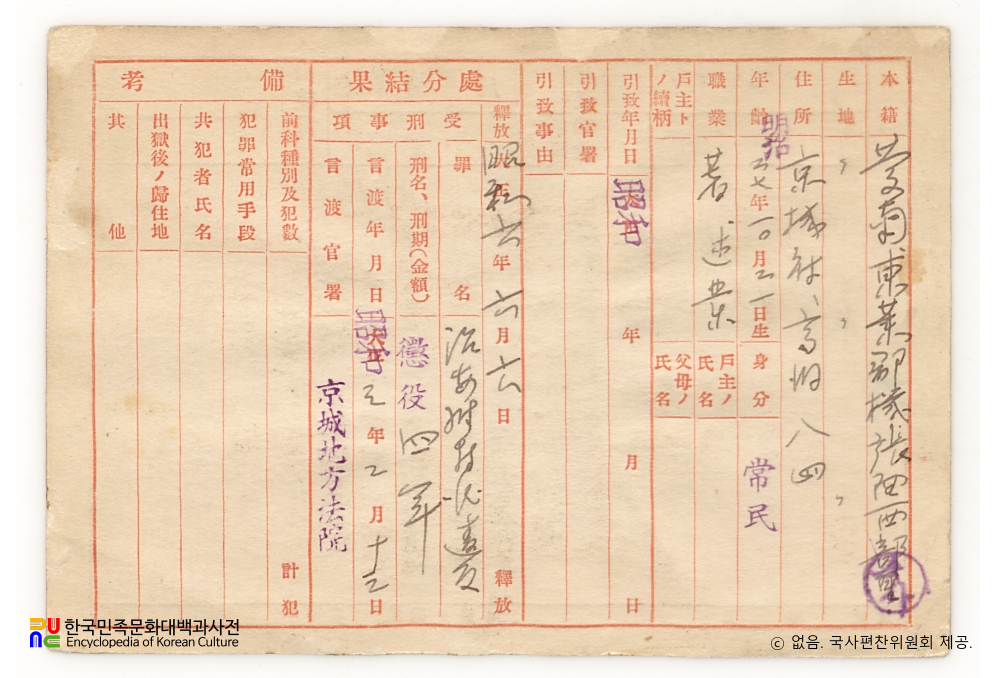 本籍 慶南東萊郡機張面西部里
生地 〃 〃 〃
住所 京城 八四
年齡 明治 年一〇月二一日生 身分 常民
職業 著述業 戶主ノ氏名
戶主トノ續柄 父母ノ氏名
引致年月日 昭和 年 月 日
引致官署
引致事由
處分結果
釋放 昭和六年六月六日 釋放
受刑事項
罪名 治安維持法違反
刑名、刑期(金額) 懲役四年
言渡年月日 昭和 年 月十三日
言渡官署 京城地方法院
備考
前科種別及犯數 計 犯
犯罪常用手段
共犯者氏名
出獄後ノ歸住地
其他
한국민족문화대백과사전
Encyclopedia of Korean Culture
ⓒ 없음. 국사편찬위원회 제공.